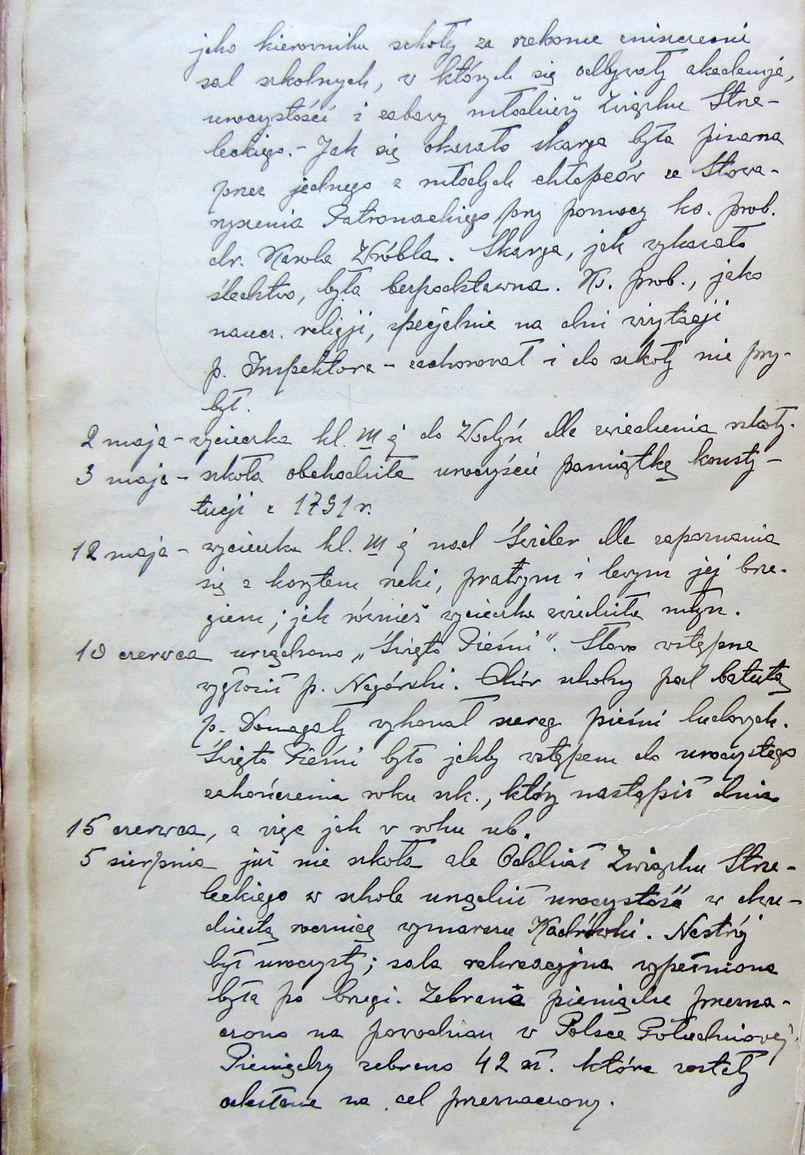 jako kierownika szkoły za rzekome zniszczenie
sal szkolnych, w których się odbywały akademje,
uroczystości i zabawy młodzieży Związku Strze-
leckiego. - Jak się okazało skarga była pisana
przez jednego z młodych chłopców ze Stowa-
rzyszenia Patronackiego przy pomocy ks. prob.
dr. Karola Wróbla. Skarga, jak wykazało
śledztwo, była bezpodstawna. Ks. prob., jako
naucz. religji, specjalnie na dni wizytacji
p. Inspektora - zachorował i do szkoły nie przy-
był.
2 maja - wycieczka kl. III ej do Wodyń dla zwiedzenia szkoły.
3 maja - szkoła obchodziła uroczyście pamiątkę konsty-
tucji z 1791 r.
12 maja - wycieczka kl. III ej nad Świder dla zapoznania
się z korytem rzeki, prawym i lewym jej brze-
giem; jak również wycieczka zwiedziła młyn.
10 czerwca urządzono „Święto Pieśni". Słowo wstępne
wygłosił p. Nagórski. Chór szkolny pod batutą
p. Domagały wykonał szereg pieśni ludowych.
Święto Pieśni było jakby wstępem do uroczystego
zakończenia roku szk., który nastąpił dnia
15 czerwca, a więc jak w roku ub.
5 sierpnia już nie szkoła ale Oddział Związku Strze-
leckiego w szkole urządził uroczystość w dwu-
dziestą rocznicę wymarszu Kadrówki. Nastrój
był uroczysty; sala rekreacyjna wypełniona
była po brzegi. Zebrane pieniądze przezna-
czono na powodzian w Polsce Południowej.
Pieniędzy zebrano 42 zł. które zostały
odesłane na cel przeznaczony.